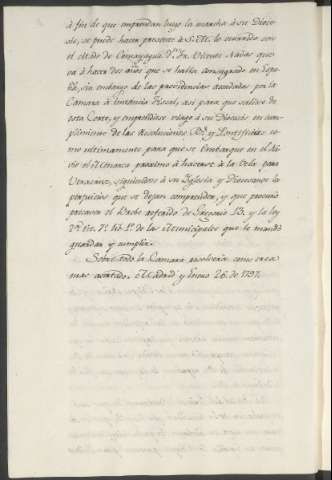 à fin de que emprendan luego la marcha à su Dioce-
sis, se puede hacer presente à S. M. lo ocurrido con
el Obpo de Comayagua Dn. Fr. Vicente Navas que
va à hacer dos años que se halla consagrado en Espa-
ña, sin embargo de las providencias acordadas por la
Camara à instancia Fiscal, asi para que saliese de
esta Corte, y emprendiese viage à su Diocesis en cum-
plimiento de las Resoluciones Rs. y Pontificias: co-
mo ultimamente para que se embarque en el Na-
vio el Monarca proximo à hacerse à la Vela para
Veracruz, siguiendose à su Iglesia y Diocesanos los
perjuicios que se dejan comprender, y que
el Breve de Gregorio 13. y la ley
tit. 7. lib. 1o. de las Municipales que se manda
guardar y cumplir.
Sobre todo la Camara resolverà como crea
mas acertado. Madrid y Enero 26. de 1797.